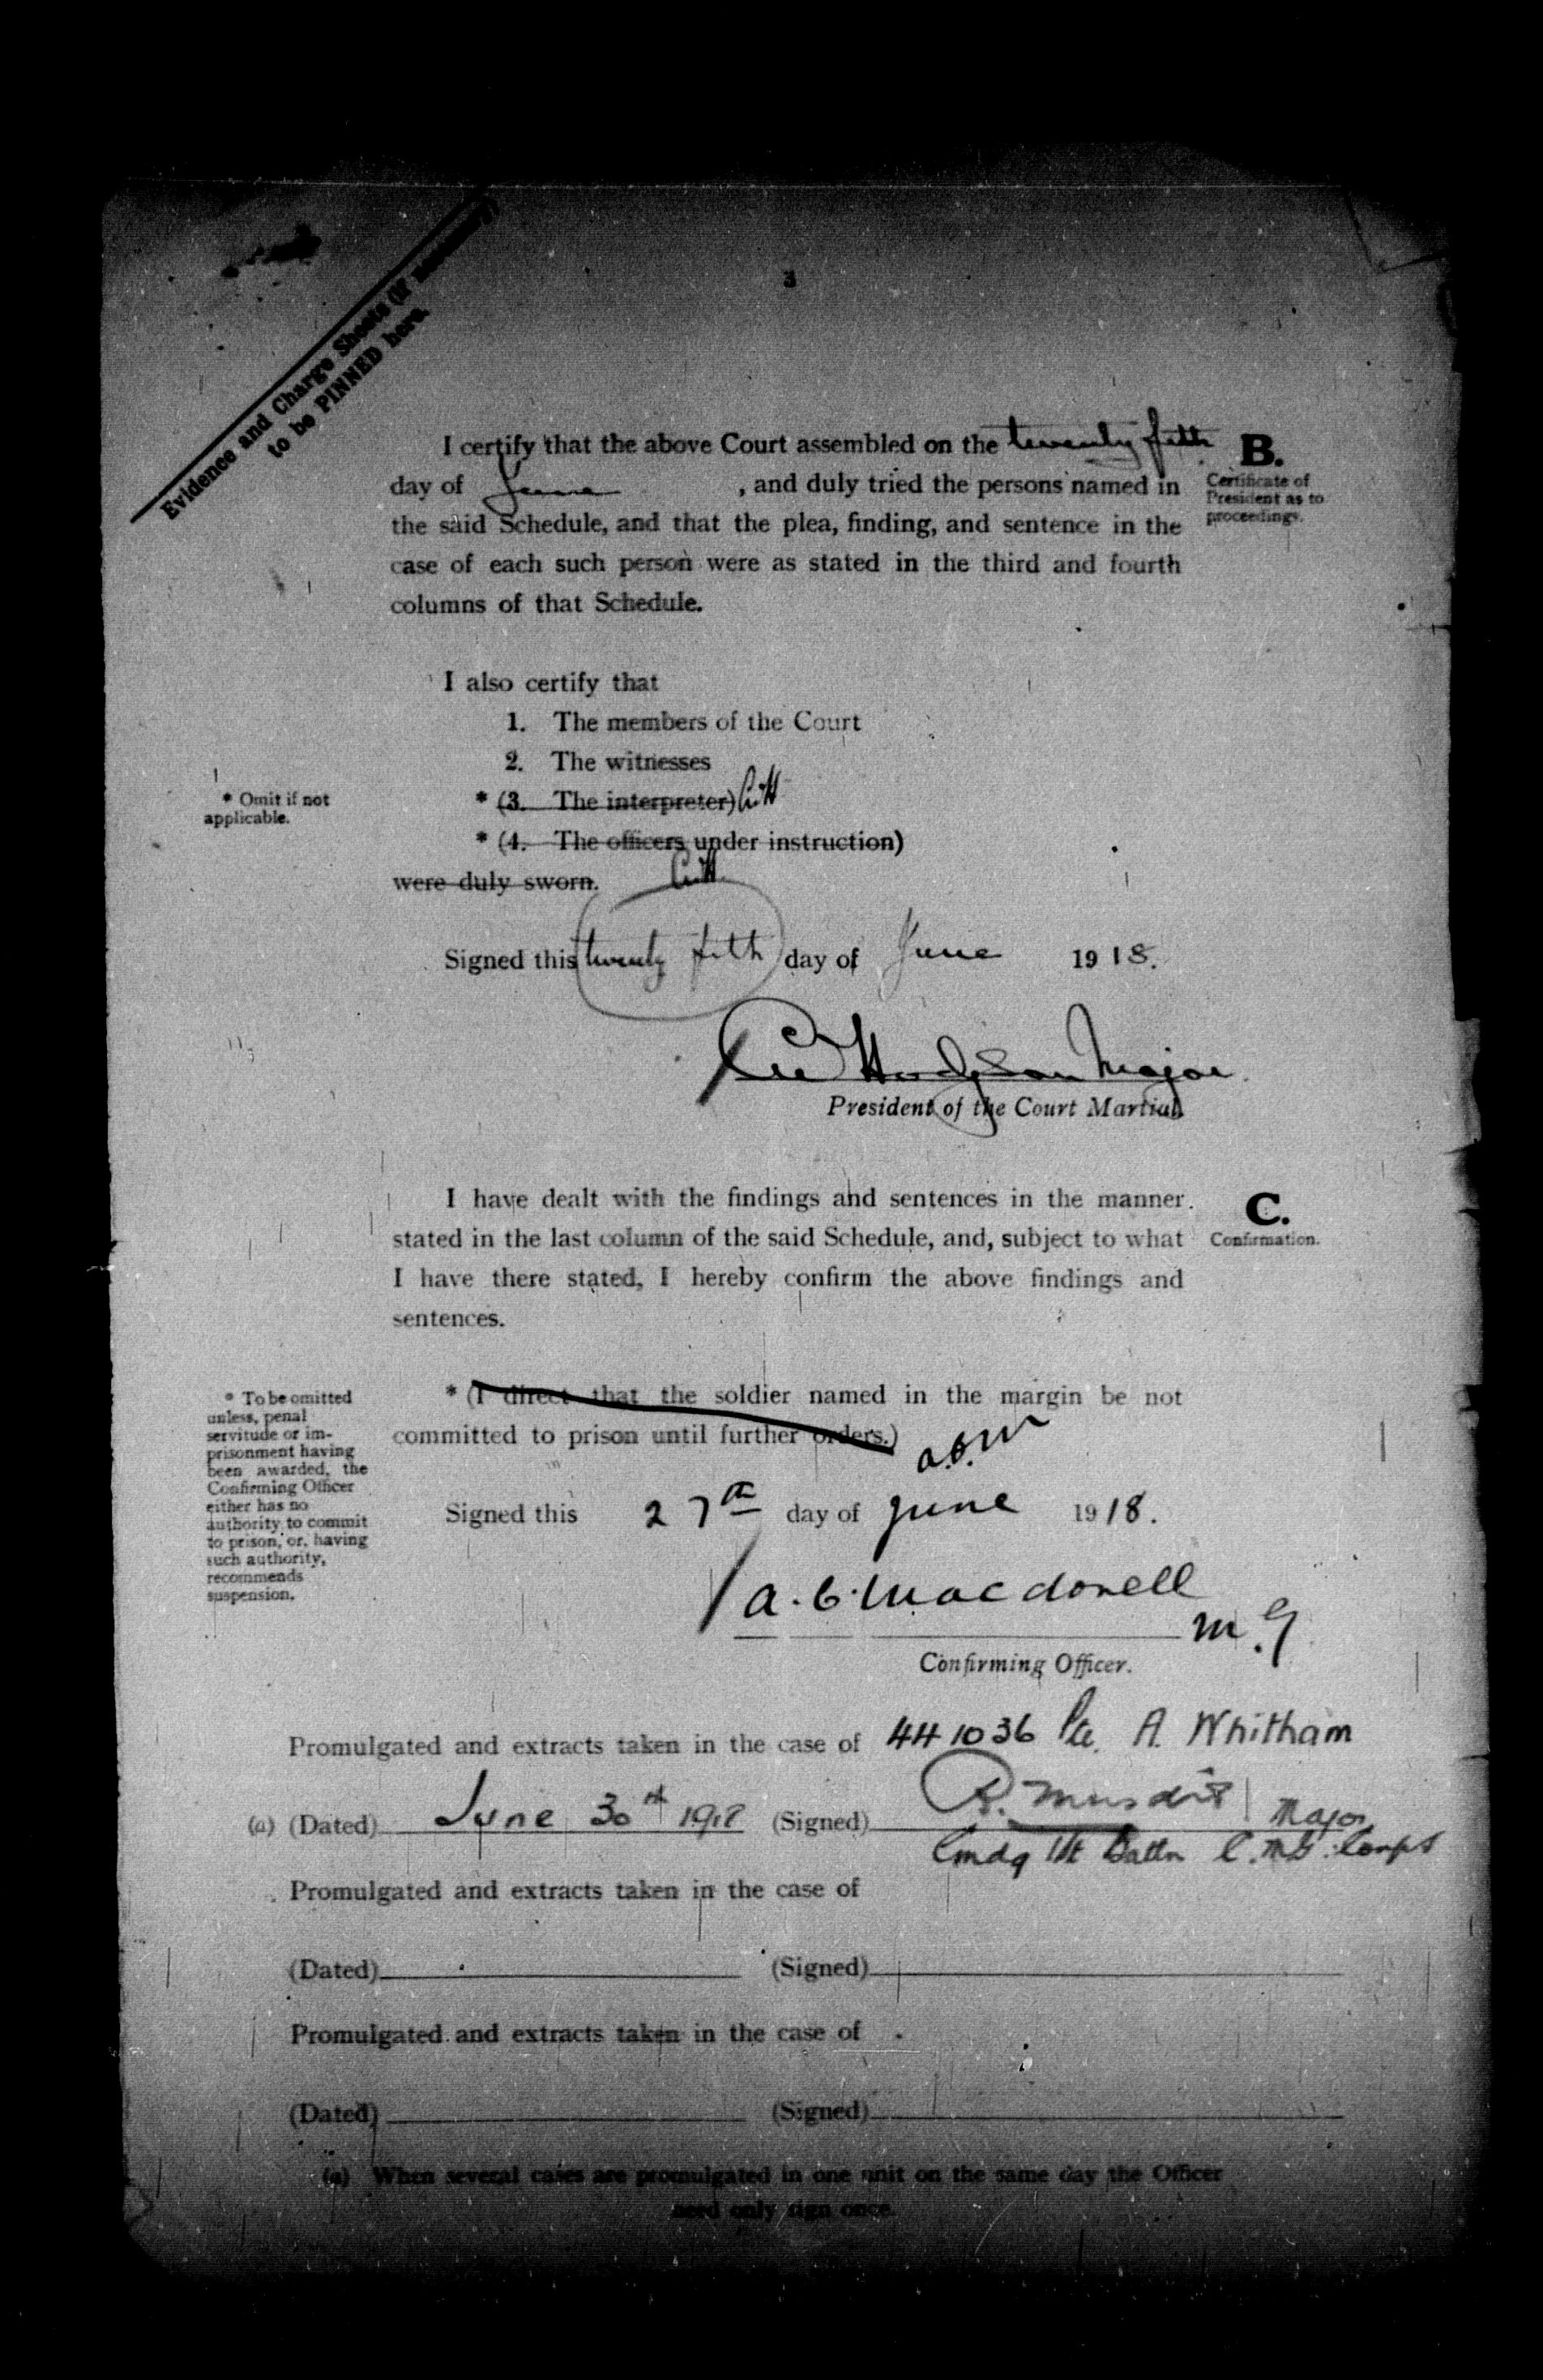 3
Evidence and Charge Sheets (if necessary)
to be PINNED here.
I certify that the above Court assembled on the twenty fifth
day of June , and duly tried the persons named in
the said Schedule, and that the plea, finding, and sentence in the
case of each such person were as stated in the third and fourth
columns of that Schedule.
B.
Certificate of
President as to
proceedings.
I also certify that
1. The members of the Court
2. The witnesses
* (3. The interpreter)
* (4. The officers under instruction)
were duly sworn.
* Omit if not
applicable.
Signed this twenty fifth day of June 1918.
Hodgson Major
President of the Court Martial
I have dealt with the findings and sentences in the manner
stated in the last column of the said Schedule, and, subject to what
I have there stated, I hereby confirm the above findings and
sentences.
C.
Confirmation.
* (I direct that the soldier named in the margin be not
committed to prison until further orders.)
* To be omitted
unless, penal
servitude or im-
prisonment having
been awarded, the
Confirming Officer
either has no
authority to commit
to prison, or, having
such authority,
recommends
suspension.
a.c.m
Signed this 27th day of June 1918.
A. C. Macdonell
M.G
Confirming Officer.
Promulgated and extracts taken in the case of 441036 Pte. A. Whitham
(a) (Dated) June 30th 1918 (Signed) Major
Cmdg 1st Battn C.M.G. Corps
Promulgated and extracts taken in the case of
(Dated) (Signed)
Promulgated and extracts taken in the case of
(Dated) (Signed)
(a) When several cases are promulgated in one unit on the same day the Officer
need only sign once.